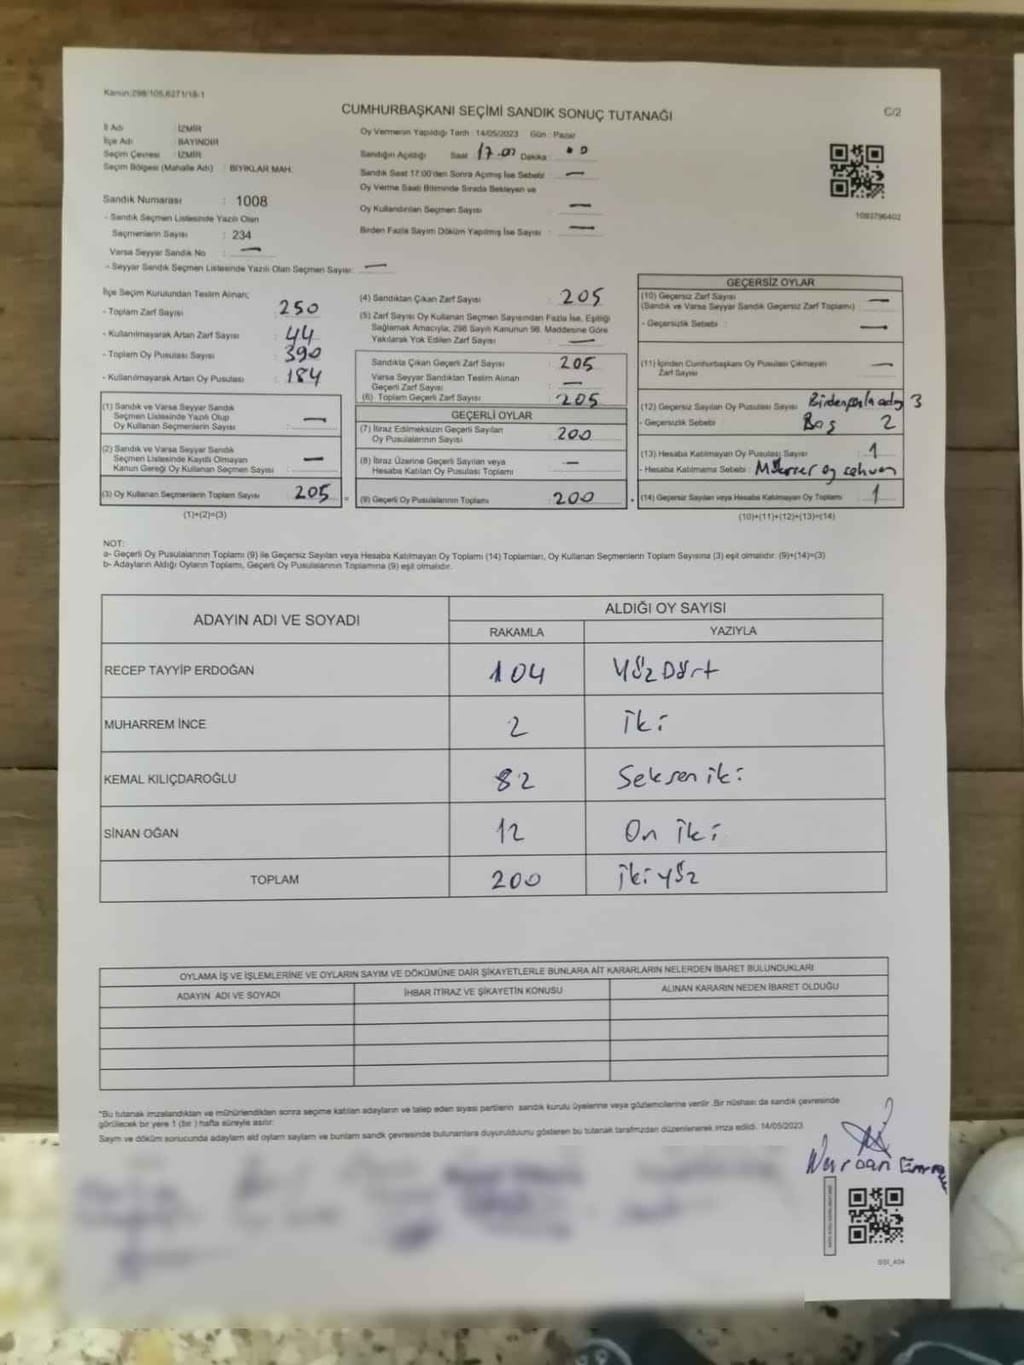 Kanun:298/105,6271/18-1
CUMHURBAŞKANI SEÇİMİ SANDIK SONUÇ TUTANAĞI
C/2
İl Adı : İZMİR
İlçe Adı : BAYINDIR
Seçim Çevresi : İZMİR
Seçim Bölgesi (Mahalle Adı) BIYIKLAR MAH.
Sandık Numarası : 1008
- Sandık Seçmen Listesinde Yazılı Olan
Seçmenlerin Sayısı : 234
Varsa Seyyar Sandık No : —
- Seyyar Sandık Seçmen Listesinde Yazılı Olan Seçmen Sayısı: —
Oy Vermenin Yapıldığı Tarih : 14/05/2023 Gün : Pazar
Sandığın Açıldığı Saat 17.00 Dakika
Sandık Saat 17:00'den Sonra Açılmış İse Sebebi : —
Oy Verme Saati Bitiminde Sırada Bekleyen ve
Oy Kullandırılan Seçmen Sayısı : —
Birden Fazla Sayım Döküm Yapılmış İse Sayısı : —
1093796402
İlçe Seçim Kurulundan Teslim Alınan;
- Toplam Zarf Sayısı : 250
- Kullanılmayarak Artan Zarf Sayısı : 44
- Toplam Oy Pusulası Sayısı : 390
- Kullanılmayarak Artan Oy Pusulası : 184
(1) Sandık ve Varsa Seyyar Sandık
Seçmen Listesinde Yazılı Olup
Oy Kullanan Seçmenlerin Sayısı : —
(2) Sandık ve Varsa Seyyar Sandık
Seçmen Listesinde Kayıtlı Olmayan
Kanun Gereği Oy Kullanan Seçmen Sayısı : —
(3) Oy Kullanan Seçmenlerin Toplam Sayısı : 205
(1)+(2)=(3)
(4) Sandıktan Çıkan Zarf Sayısı : 205
(5) Zarf Sayısı Oy Kullanan Seçmen Sayısından Fazla İse, Eşitliği
Sağlamak Amacıyla, 298 Sayılı Kanunun 98. Maddesine Göre
Yakılarak Yok Edilen Zarf Sayısı : —
Sandıkta Çıkan Geçerli Zarf Sayısı : 205
Varsa Seyyar Sandıktan Teslim Alınan
Geçerli Zarf Sayısı : —
(6) Toplam Geçerli Zarf Sayısı : 205
GEÇERLİ OYLAR
(7) İtiraz Edilmeksizin Geçerli Sayılan
Oy Pusulalarının Sayısı : 200
(8) İtiraz Üzerine Geçerli Sayılan veya
Hesaba Katılan Oy Pusulası Toplamı : —
(9) Geçerli Oy Pusulalarının Toplamı : 200
GEÇERSİZ OYLAR
(10) Geçersiz Zarf Sayısı
(Sandık ve Varsa Seyyar Sandık Geçersiz Zarf Toplamı) : —
- Geçersizlik Sebebi : —
(11) İçinden Cumhurbaşkanı Oy Pusulası Çıkmayan
Zarf Sayısı : —
(12) Geçersiz Sayılan Oy Pusulası Sayısı : Birden fazla aday 3
- Geçersizlik Sebebi : Boş 2
(13) Hesaba Katılmayan Oy Pusulası Sayısı : 1
- Hesaba Katılmama Sebebi : Mükerrer oy
(14) Geçersiz Sayılan veya Hesaba Katılmayan Oy Toplamı : 1
(10)+(11)+(12)+(13)=(14)
NOT:
a- Geçerli Oy Pusulalarının Toplamı (9) ile Geçersiz Sayılan veya Hesaba Katılmayan Oy Toplamı (14) Toplamları, Oy Kullanan Seçmenlerin Toplam Sayısına (3) eşit olmalıdır. (9)+(14)=(3)
b- Adayların Aldığı Oyların Toplamı, Geçerli Oy Pusulalarının Toplamına (9) eşit olmalıdır.
ADAYIN ADI VE SOYADI
ALDIĞI OY SAYISI
RAKAMLA YAZIYLA
RECEP TAYYİP ERDOĞAN 104 Yüz Dört
MUHARREM İNCE 2 iki
KEMAL KILIÇDAROĞLU 82 Seksen iki
SİNAN OĞAN 12 On iki
TOPLAM 200 iki yüz
OYLAMA İŞ VE İŞLEMLERİNE VE OYLARIN SAYIM VE DÖKÜMÜNE DAİR ŞİKAYETLERLE BUNLARA AİT KARARLARIN NELERDEN İBARET BULUNDUKLARI
ADAYIN ADI VE SOYADI İHBAR İTİRAZ VE ŞİKAYETİN KONUSU ALINAN KARARIN NEDEN İBARET OLDUĞU
*Bu tutanak imzalandıktan ve mühürlendikten sonra seçime katılan adayların ve talep eden siyasi partilerin sandık kurulu üyelerine veya gözlemcilerine verilir. Bir nüshası da sandık çevresinde
görülecek bir yere 1 (bir) hafta süreyle asılır.
Sayım ve döküm sonucunda adayların ald oyların sayıların ve bunların sandk çevresinde bulunanlara duyurulduunu gösteren bu tutanak tarafmzdan düzenlenerek imza edildi. 14/05/2023
Nurcan